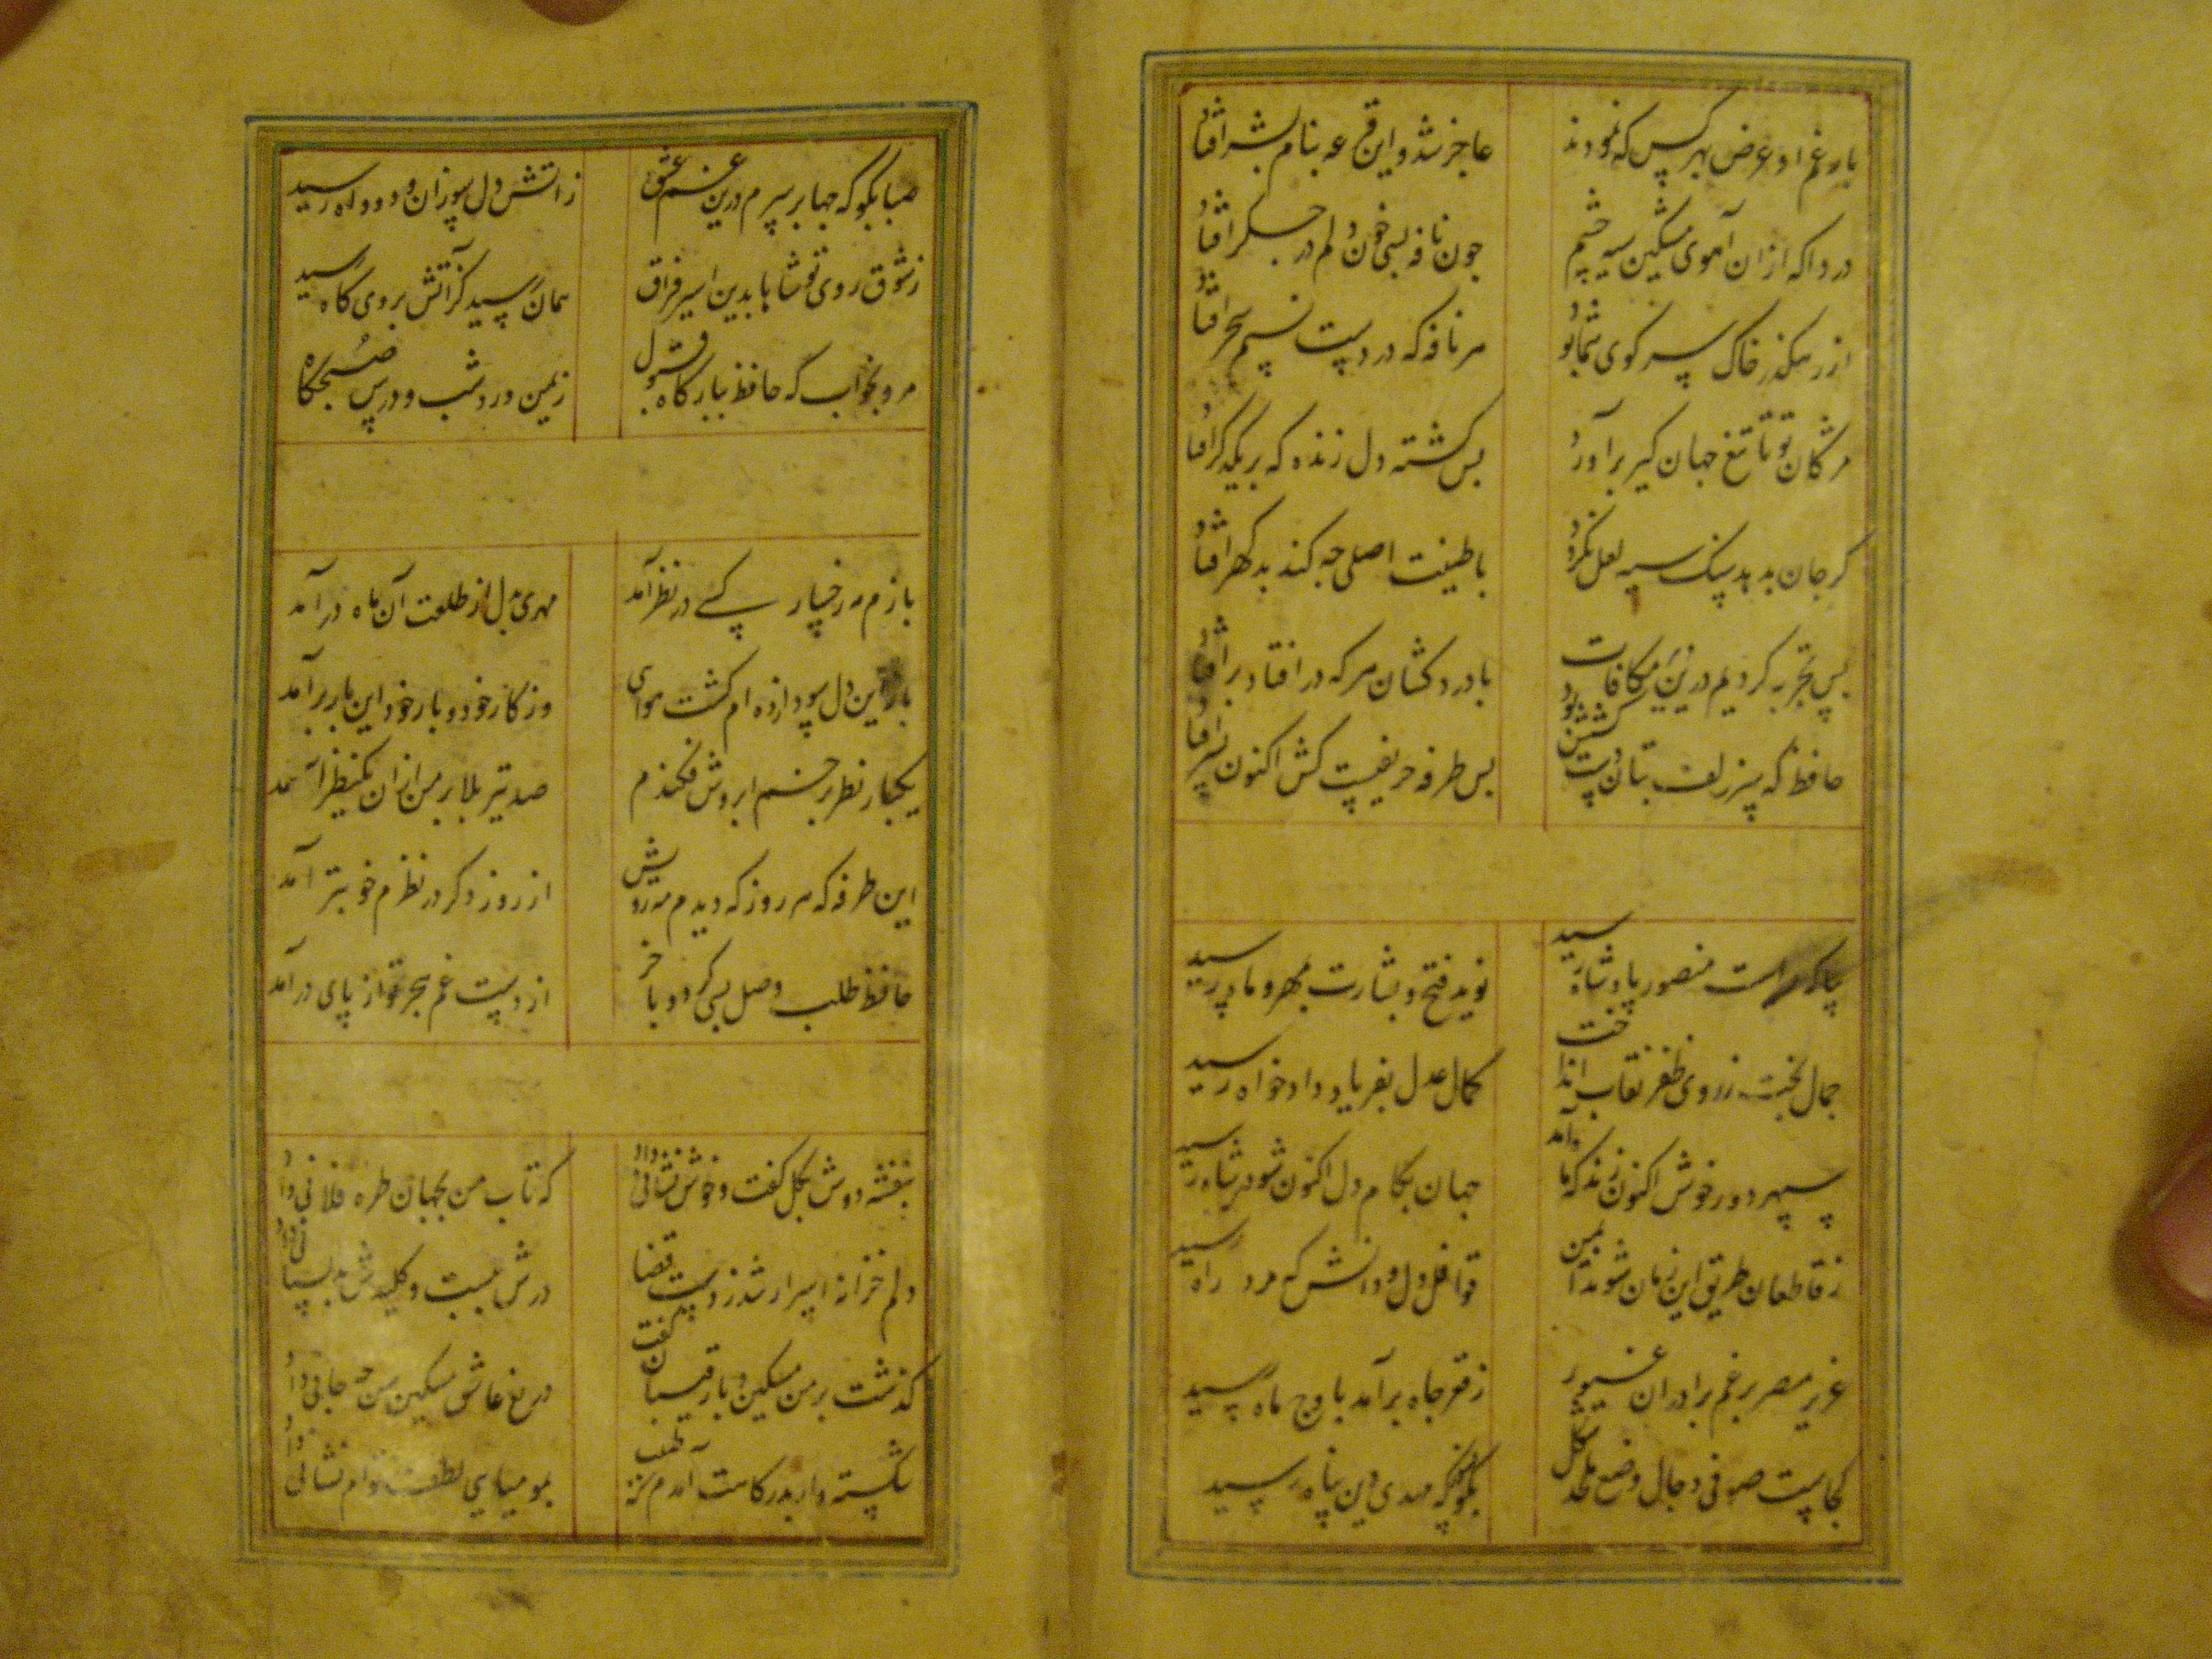 بار غم او عرض بهر کس که نمودند
عاجز شد و این قرعه بنام بشر افتاد
دردا که از ان آهوی مشکین سیه چشم
چون نافه بسی خون دلم در جگر افتاد
از رهگذر خاک سر کوی شما بود
هر نافه که در دست نسیم سحر افتاد
مژکان تو تا تیغ جهان کیر برآورد
بس کشته دل زنده که بر یکدکر افتاد
کر جان بدهد سنک سیه لعل نکردد
با طینت اصلی چه کند بد کهر افتاد
بس تجربه کردیم درین دیر مکافات
با درد کشان هر که در افتاد بر افتاد
حافظ که سر زلف بتان دست کشش بود
بس طرفه حریفیست کش اکنون بسر افتاد
بیا که رایت منصور پادشاه رسید
نوید فتح و بشارت بمهر و ماه رسید
جمال بخت ز روی ظفر نقاب انداخت
کمال عدل بفریاد دادخواه رسید
سپهر دور خوش اکنون زند که ماه آمد
جهان بکام دل اکنون شود که شاه رسید
ز قاطعان طریق این زمان شوند ایمن
قوافل دل و دانش که مرد راه رسید
عزیز مصر برغم برادران غیور
ز قعر چاه برآمد باوج ماه رسید
کجاست صوفی دجال وضع ملحد شکل
بکو بسوز که مهدی دین پناه رسید
صبا بکو که چها بر سرم درین غم عشق
ز آتش دل سوزان و دود آه رسید
ز شوق روی تو شاها بدین اسیر فراق
همان رسید کز آتش بروی کاه رسید
مرو بخواب که حافظ ببارکاه قبول
ز یمن ورد شب و درس صبحکاه
بازم مه رخسار کسے در نظر آمد
مهری بدل از طلعت آن ماه در آمد
باز این دل سودازده ام کشت هوای
وز کار خود و بار خود این بار بر آمد
یکبار نظر بر خم ابروش فکندم
صد تیر بلا بر من از ان یکنظر آمد
این طرفه که هر روز که دیدم مه رویش
از روز دکر در نظرم خوبتر آمد
حافظ طلب وصل بسی کرد و باخر
از دست غم هجر تو از پای در آمد
بنفشه دوش بکل کفت و خوش نشانی داد
که تاب من بجهان طره فلانی داد
دلم خزانه اسرار شد ز دست قضا
درش ببست و کلیدش بدلستانی داد
کذشت بر من مسکین و با رقیبان کفت
دریغ عاشق مسکین من چه جانی داد
شکسته وار بدرکاهت آمدم که طبیب
بمومیایی لطف توام نشانی داد